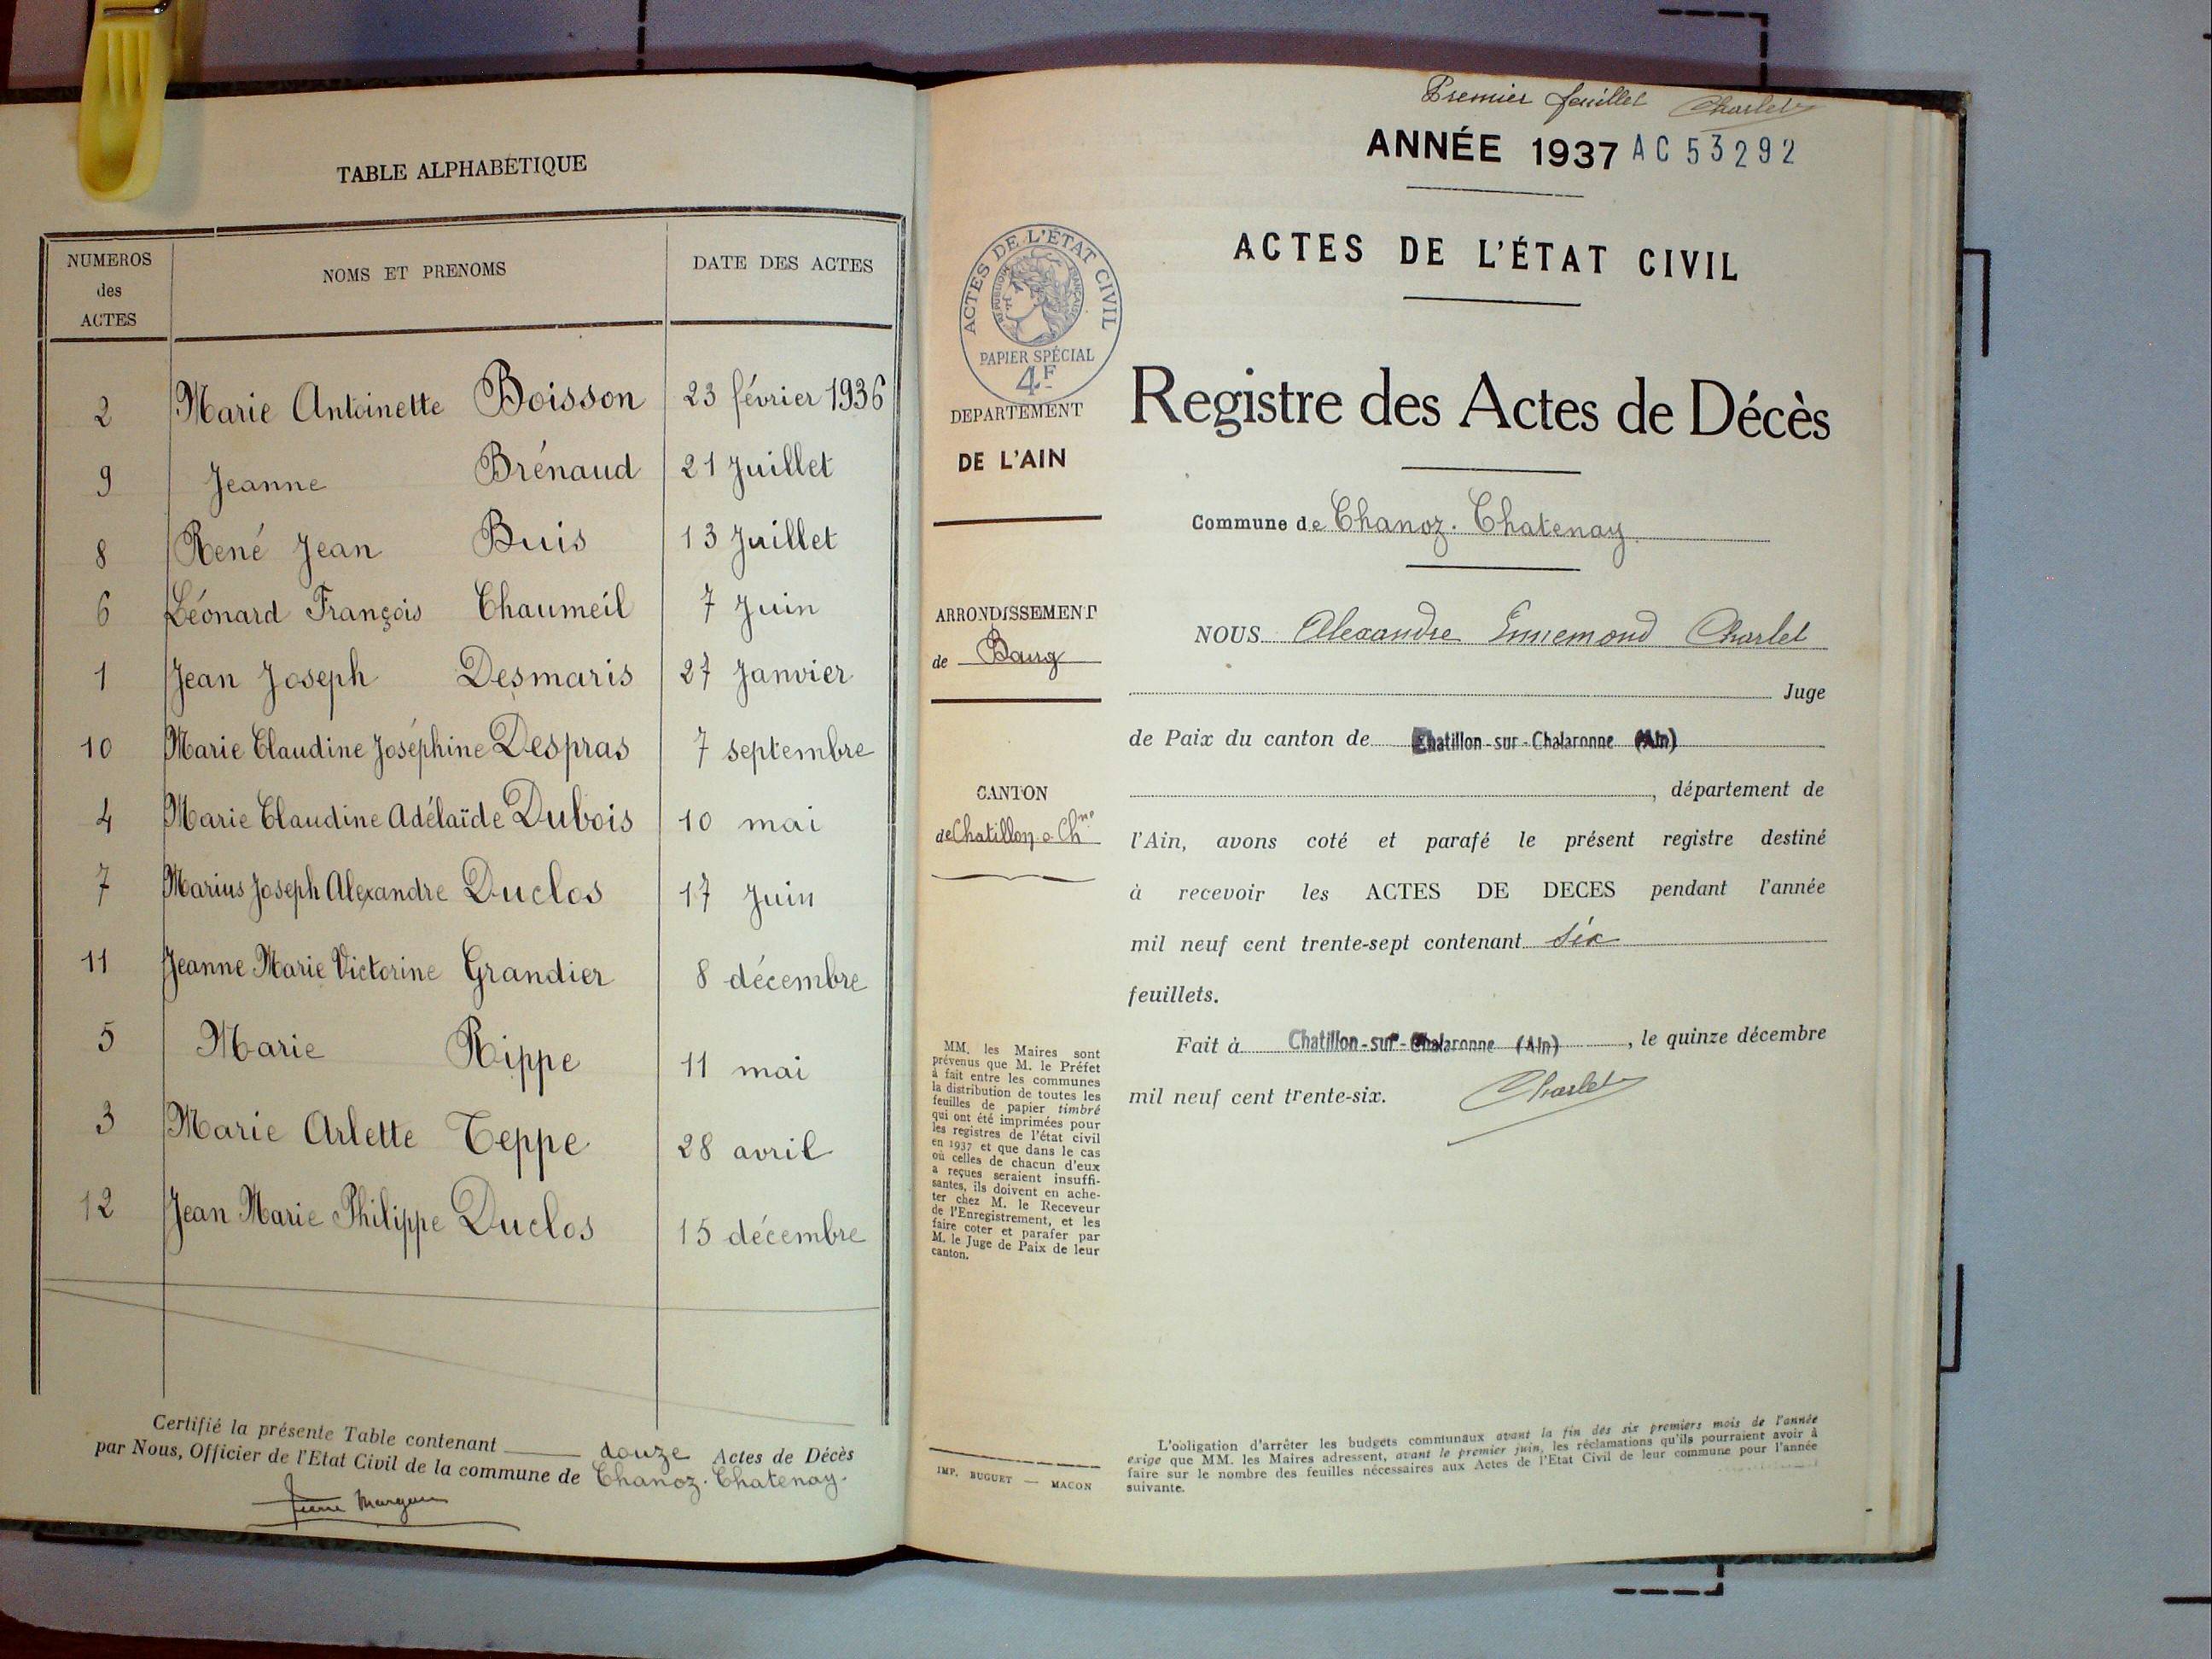 TABLE ALPHABÉTIQUE
NUMEROS des ACTES NOMS ET PRENOMS DATE DES ACTES
2 Marie Antoinette Boisson 23 février 1936
9 Jeanne Brénaud 21 Juillet
8 René Jean Buis 13 Juillet
6 Léonard François Chaumeil 7 Juin
1 Jean Joseph Desmaris 27 Janvier
10 Marie Claudine Joséphine Despras 7 septembre
4 Marie Claudine Adélaïde Dubois 10 mai
7 Marius Joseph Alexandre Duclos 17 Juin
11 Jeanne Marie Victorine Grandier 8 décembre
5 Marie Rippe 11 mai
3 Marie Arlette Teppe 28 avril
12 Jean Marie Philippe Duclos 15 décembre
Certifié la présente Table contenant douze Actes de Décès
par Nous, Officier de l'Etat Civil de la commune de Chanoz-Chatenay.
Premier feuillet Charlet
ANNÉE 1937 AC 53292
ACTES DE L'ÉTAT CIVIL
ACTES DE L'ÉTAT CIVIL
RÉPUBLIQUE FRANÇAISE
PAPIER SPÉCIAL
4F
DEPARTEMENT
DE L'AIN
Registre des Actes de Décès
Commune de Chanoz-Chatenay
ARRONDISSEMENT
de Bourg
CANTON
de Chatillon s Chne
NOUS Alexandre Ennemond Charlet
Juge
de Paix du canton de Chatillon-sur-Chalaronne (Ain)
, département de
l'Ain, avons coté et parafé le présent registre destiné
à recevoir les ACTES DE DECES pendant l'année
mil neuf cent trente-sept contenant six
feuillets.
Fait à Chatillon-sur-Chalaronne (Ain), le quinze décembre
mil neuf cent trente-six. Charlet
MM. les Maires sont
prévenus que M. le Préfet
à fait entre les communes
la distribution de toutes les
feuilles de papier timbré
qui ont été imprimées pour
les registres de l'état civil
en 1937 et que dans le cas
où celles de chacun d'eux
a reçues seraient insuffi-
santes, ils doivent en ache-
ter chez M. le Receveur
de l'Enregistrement, et les
faire coter et parafer par
M. le Juge de Paix de leur
canton.
IMP. BUGUET — MACON
L'obligation d'arrêter les budgets communaux avant la fin des six premiers mois de l'année
exige que MM. les Maires adressent, avant le premier juin, les réclamations qu'ils pourraient avoir à
faire sur le nombre des feuilles nécessaires aux Actes de l'Etat Civil de leur commune pour l'année
suivante.